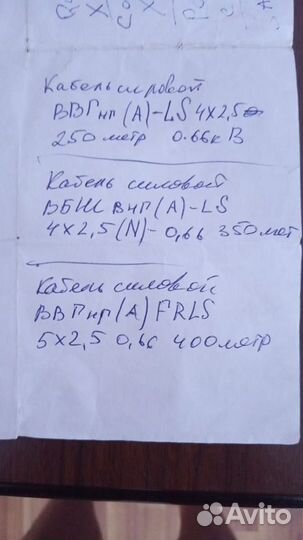 Кабель силовой
ВВГнг(А)-LS 4х2,5
250 метр 0.66кВ
Кабель силовой
ВБШвнг(А)-LS
4х2,5(N)-0,66 350 мет
Кабель силовой
ВВГнг(А)FRLS
5х2,5 0,66 400 метр
Avito